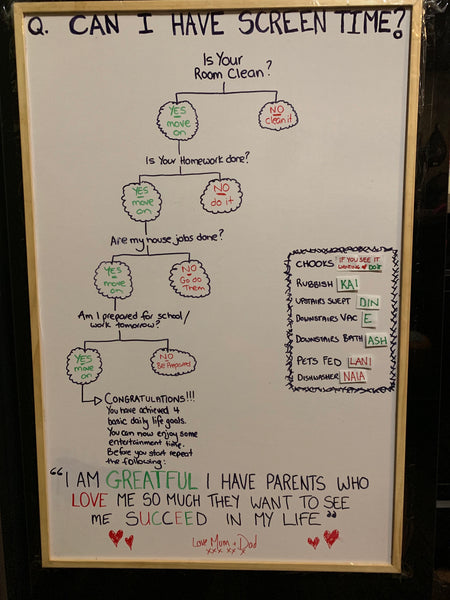 Q. CAN I HAVE SCREEN TIME?
Is Your
Room Clean?
YES
move
on
NO
clean it
Is Your Homework done?
YES
move
on
NO
do it
Are my house jobs done?
YES
move
on
NO
Go do
Them
Am I prepared for school/
work tomorrow?
YES
move
on
NO
Be Prepared
CONGRATULATIONS!!!
You have achieved 4
basic daily life goals.
You can now enjoy some
entertainment time.
Before you start repeat
the following:
CHOOKS IF YOU SEE IT
DO IT
RUBBISH KAI
UPSTAIRS SWEPT DIN
DOWNSTAIRS VAC E
DOWNSTAIRS BATH ASH
PETS FED LANI
DISHWASHER NAIA
"I AM GREATFUL I HAVE PARENTS WHO
LOVE ME SO MUCH THEY WANT TO SEE
ME SUCCEED IN MY LIFE"
Love Mum + Dad
xxx xx xx